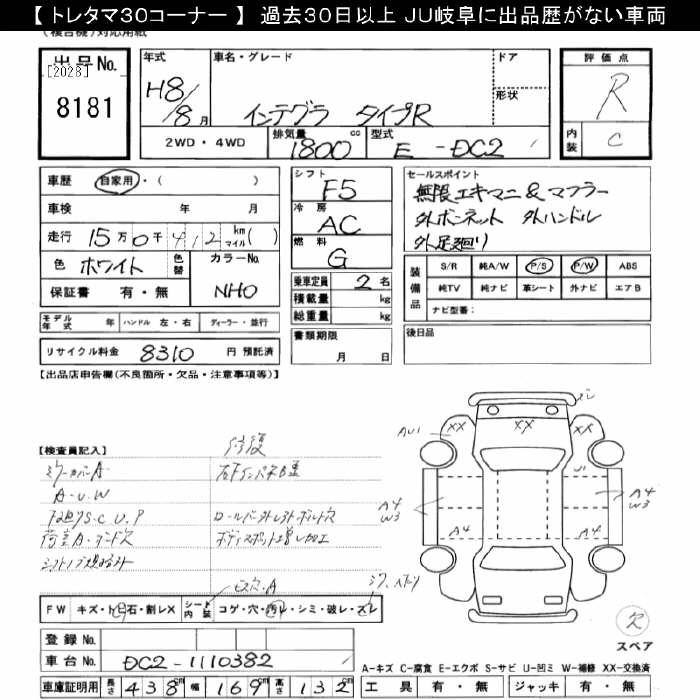 【 トレタマ30コーナー 】 過去30日以上 JU岐阜に出品歴がない車両
(複合機)対応用紙
出品No.
[2028]
8181
年式
H8/8月
車名・グレード
インテグラ タイプR
ドア
形状
評価点
R
内装
C
2WD・4WD
排気量
1800
cc
型式
E-DC2
車歴
自家用・( )
車検 年 月
走行 15万0千412 km マイル( )
色 ホワイト
色替
カラーNo.
NH0
保証書 有・無
シフト
F5
冷房
AC
燃料
G
乗車定員 2名
積載量 kg
総重量 kg
セールスポイント
無限エキマニ&マフラー
外ボンネット 外ハンドル
外足廻り
装備品
S/R 純A/W P/S P/W ABS
純TV 純ナビ 革シート 外ナビ エアB
ナビ型番:
モデル年式 年 ハンドル 左・右 ディーラー・並行
リサイクル料金 8310 円 預託済
書類期限
月 日
後日品
【出品店申告欄(不良箇所・欠品・注意事項等)】
【検査員記入】
修復
ミラーカバーA
A・U・W
下廻りS・C・U・P
AU1
XX XX XX
U1
A4
W3
A4
W3
A4 A4
FW キズ・ト石・割レX
シート内装
コゲ・穴・汚レ・シミ・破レ・スレ
登録No.
車台No. DC2-1110382
車庫証明用 長さ 438cm 幅 169cm 高さ 132cm
スペア
A-キズ C-腐食 E-エクボ S-サビ U-凹ミ W-補修 XX-交換済
工具 有・無 ジャッキ 有・無